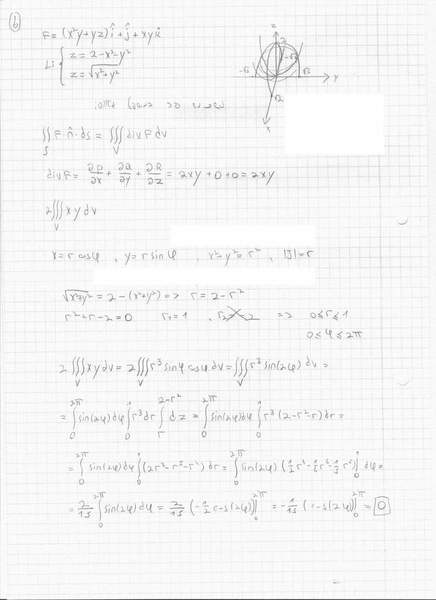 6
F = (x²y+yz) î + ĵ + xy k̂
z = 2-x²-y²
z = √(x²+y²)
z
2
-√2
√2
y
√2
x
∬_S F·n̂·ds = ∭_V div F dv
div F = ∂P/∂x + ∂Q/∂y + ∂R/∂z = 2xy + 0 + 0 = 2xy
2∭_V xy dv
x = r cosφ , y = r sinφ , x²+y² = r² , |J| = r
√(x²+y²) = 2-(x²+y²) => r = 2-r²
r²+r-2=0 r₁=1 , => 0≤r≤1
0≤φ≤2π
2∭_V xy dv = 2∭_V r³ sinφ cosφ dv = ∭_V r³ sin(2φ) dv =
= ∫_0^{2π} sin(2φ)dφ ∫_0^1 r³ dr ∫_r^{2-r²} dz = ∫_0^{2π} sin(2φ)dφ ∫_0^1 r³ (2-r²-r) dr =
= ∫_0^{2π} sin(2φ)dφ ∫_0^1 (2r³-r⁵-r⁴) dr = ∫_0^{2π} sin(2φ) (½r⁴-⅙r⁶-⅕r⁵)|_0^1 dφ =
= 2/15 ∫_0^{2π} sin(2φ) dφ = 2/15 (-½ cos(2φ))|_0^{2π} = -1/15 (cos(2φ))|_0^{2π} = 0